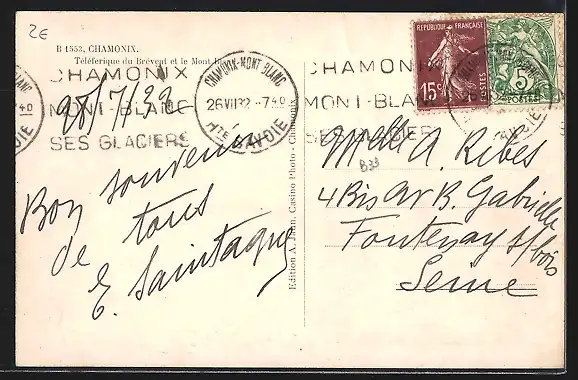 2€
B 1553, CHAMONIX.
Téléférique du Brévent et le Mont
CHAMONIX
MONT-BLANC
SES GLACIERS
CHAMONIX-MONT BLANC
26 VII 32 - 7 40
HTE SAVOIE
7/32
Bon souvenir
de tous
E. Saintagne
Edition A. Jean, Casino Photo - Chamonix
REPUBLIQUE FRANÇAISE
15c
POSTES
5
POSTES
CHAMONIX
MONT-BLA
SES GLACIERS
Melle A. Ribes
B33
4 Bis Av B. Gabrielle
Fontenay s/bois
Seine